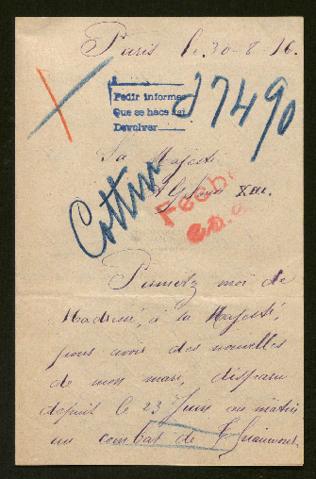 Paris le 30-8-16.
Pedir informes
Que se hace así
Devolver
27490
Sa Majesté
Alfonso XIII.
Cottin
Permetez moi de
à la Majesté,
pour avoir des nouvelles
de mon mari, disparu
depuit le 23 Juin au matin
au combat de